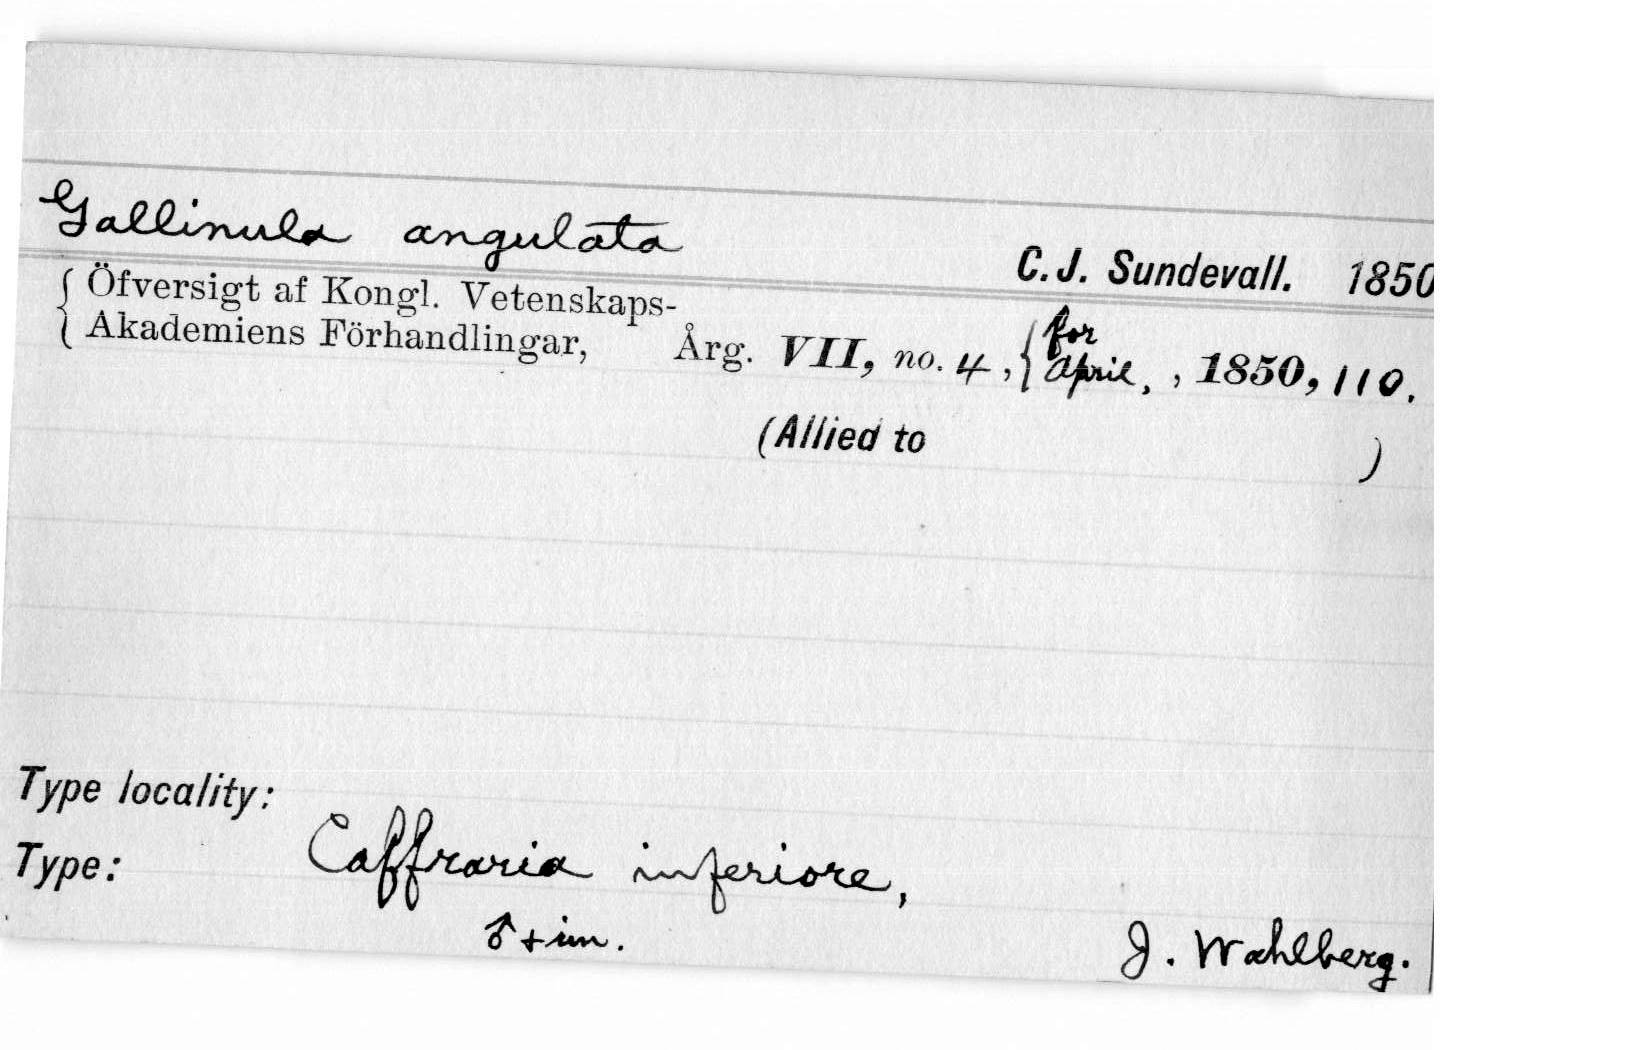 Gallinula angulata
C.J. Sundevall. 1850
{ Öfversigt af Kongl. Vetenskaps-
{ Akademiens Förhandlingar, Årg. VII, no. 4, { for April, , 1850, 110.
(Allied to )
Type locality:
Type: Caffraria inferiore,
♂ + im. J. Wahlberg.